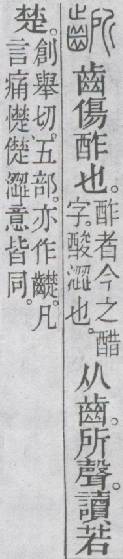 齭 齒傷酢也。酢者今之醋字。酸澀也。从齒。所聲。讀若
楚。創舉切。五部。亦作齼。凡言痛憷儊澀意皆同。